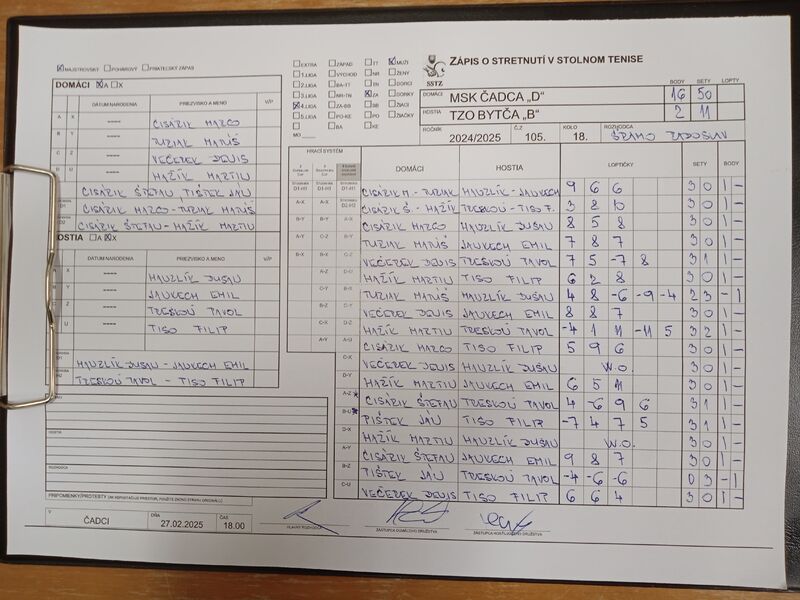 MAJSTROVSKÝ POHÁROVÝ PRIATEĽSKÝ ZÁPAS
DOMÁCI A X
DÁTUM NARODENIA PRIEZVISKO A MENO
A X ---- CISÁRIK MARCO
B Y ---- TURIAK MATÚŠ
C Z ---- VEČEREK DENIS
D U ---- HAŽÍK MARTIN
CISÁRIK ŠTEFAN PIŠTEK JÁN
D1 CISÁRIK MARCO - TURIAK MATÚŠ
D2 CISÁRIK ŠTEFAN - HAŽÍK MARTIN
HOSTIA A X
DÁTUM NARODENIA PRIEZVISKO A MENO
X ---- HANZLÍK DUŠAN
Y ---- JAUKECH EMIL
Z ---- TRESKOŇ PAVOL
U ---- TISO FILIP
HANZLÍK DUŠAN - JAUKECH EMIL
TRESKOŇ PAVOL - TISO FILIP
HOSTIA
ROZHODCA
PRIPOMIENKY/PROTESTY
V ČADCI DŇA 27.02.2025 ČAS 18.00
HLAVNÝ ROZHODCA
ZÁSTUPCA DOMÁCEHO DRUŽSTVA
ZÁSTUPCA HOSŤUJÚCEHO DRUŽSTVA
EXTRA ZÁPAD TT MUŽI
1.LIGA VÝCHOD NR ŽENY
2.LIGA BA-TT TN DORCI
3.LIGA NR-TN ZA DORKY
4.LIGA ZA-BB BB ŽIACI
5.LIGA PO-KE PO ŽIAČKY
BA KE
MO
SSTZ
ZÁPIS O STRETNUTÍ V STOLNOM TENISE
BODY SETY LOPTY
DOMÁCI MSK ČADCA „D“ 16 50
HOSTIA TZO BYTČA „B“ 2 11
ROČNÍK 2024/2025 Č.Z 105. KOLO 18. ROZHODCA SRAMO RADOSLAV
HRACÍ SYSTÉM DOMÁCI HOSTIA LOPTIČKY SETY BODY
CISÁRIK M - TURIAK HANZLÍK - JAUKECH 9 6 6 3 0 1 -
CISÁRIK Š. - HAŽÍK TRESKOŇ - TISO F. 3 8 10 3 0 1 -
CISÁRIK MARCO HANZLÍK DUŠAN 8 5 8 3 0 1 -
TURIAK MATÚŠ JAUKECH EMIL 7 8 7 3 0 1 -
VEČEREK DENIS TRESKOŇ PAVOL 7 5 -7 8 3 1 1 -
HAŽÍK MARTIN TISO FILIP 6 2 8 3 0 1 -
TURIAK MATÚŠ HANZLÍK DUŠAN 4 8 -6 -9 -4 2 3 - 1
VEČEREK DENIS JAUKECH EMIL 8 8 7 3 0 1 -
HAŽÍK MARTIN TRESKOŇ PAVOL -4 1 11 -11 5 3 2 1 -
CISÁRIK MARCO TISO FILIP 5 9 6 3 0 1 -
VEČEREK DENIS HANZLÍK DUŠAN W.O. 3 0 1 -
HAŽÍK MARTIN JAUKECH EMIL 6 5 11 3 0 1 -
CISÁRIK ŠTEFAN TRESKOŇ PAVOL 4 -6 9 6 3 1 1 -
PIŠTEK JÁN TISO FILIP -7 4 7 5 3 1 1 -
HAŽÍK MARTIN HANZLÍK DUŠAN W.O. 3 0 1 -
CISÁRIK ŠTEFAN JAUKECH EMIL 9 8 7 3 0 1 -
PIŠTEK JÁN TRESKOŇ PAVOL -4 -6 -6 0 3 - 1
VEČEREK DENIS TISO FILIP 6 6 4 3 0 1 -